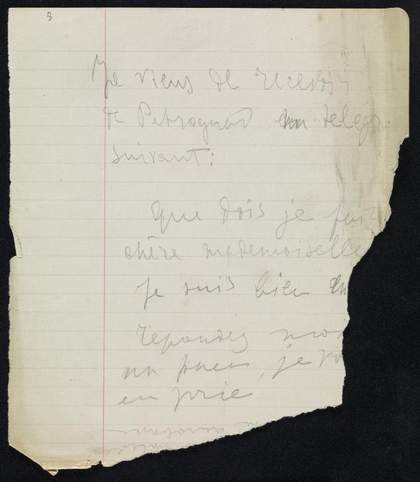 3
Je viens de recevoir
de Petrograd un telegr
suivant:
Que dois je fai
chère mademoiselle
Je suis bien en
repondez moi
un pneu, je v
en prie